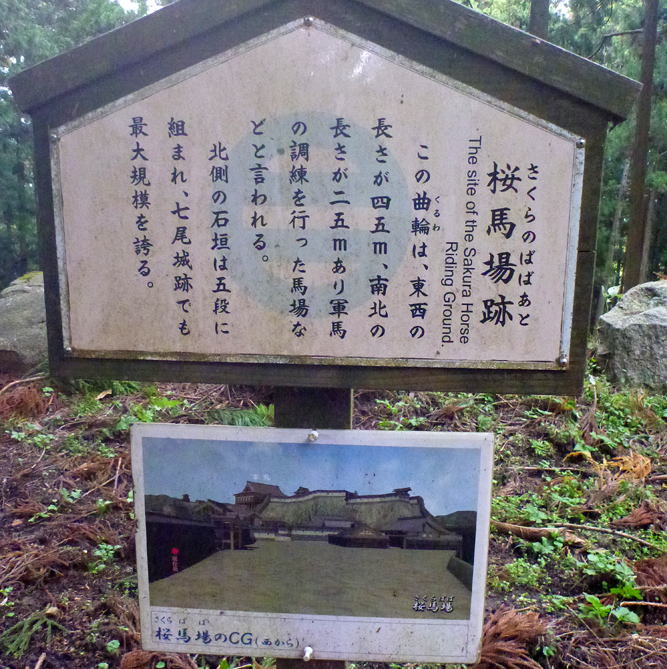 さくらのばばあと
桜馬場跡
The site of the Sakura Horse
Riding Ground.
くるわ
この曲輪は、東西の
長さが四五m、南北の
長さが二五mあり軍馬
の調練を行った馬場な
どと言われる。
北側の石垣は五段に
組まれ、七尾城跡でも
最大規模を誇る。
さくらばば
桜馬場
さくら ば ば
桜馬場のCG(西から)